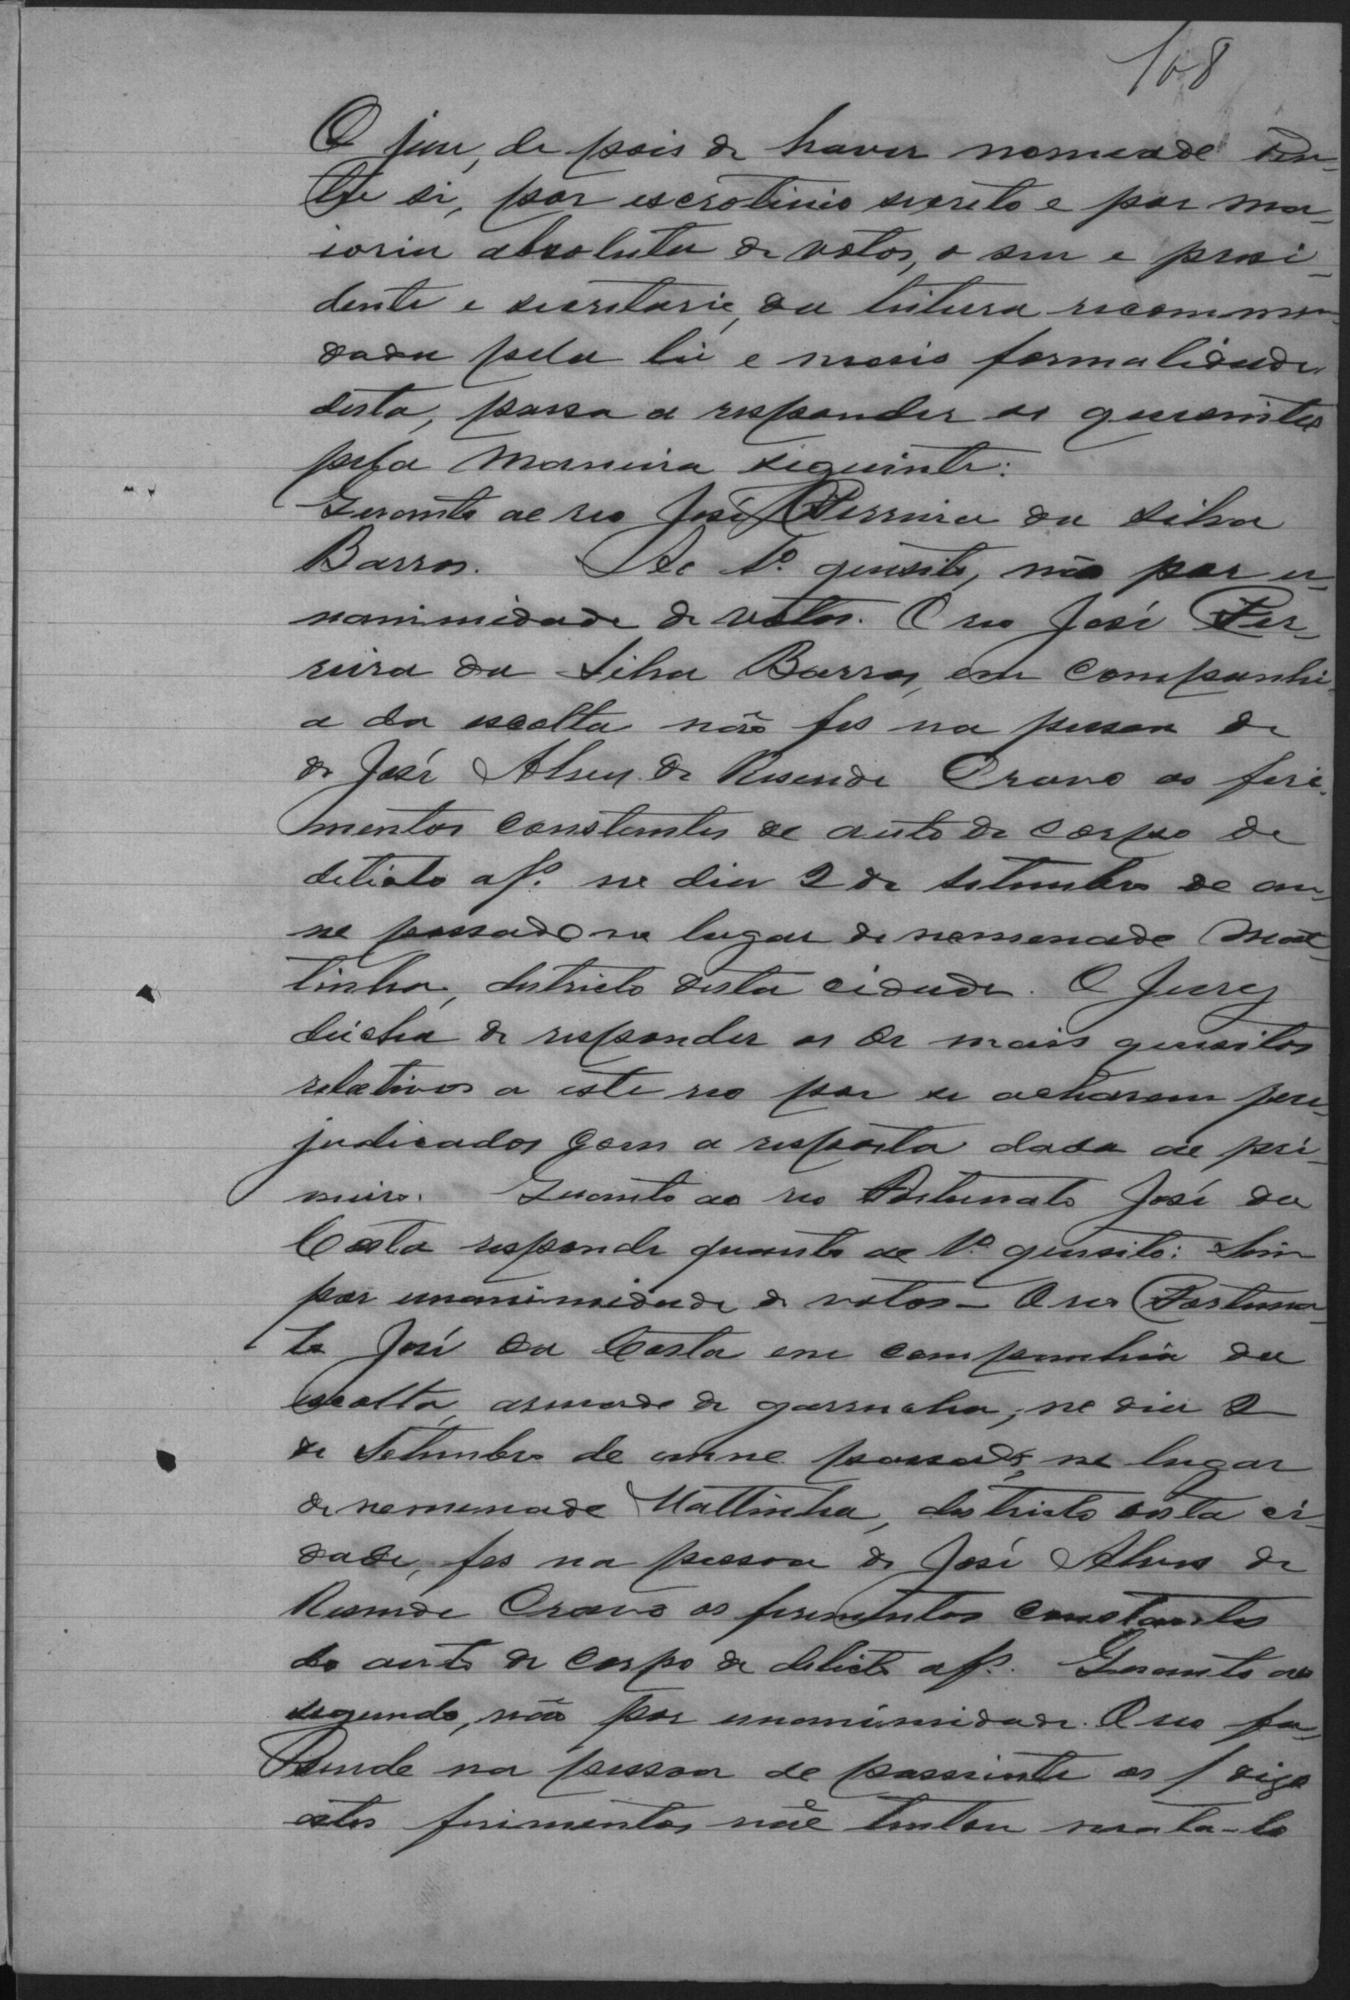 168
O jury, de pois de haver nomeado den-
tre si, por escrotinio secreto e por ma-
ioria absoluta de votos, o seu e presi-
dente e secretario, da leitura recommen-
dada pela lei e mais formalidade
desta, passa a responder os quesitos
pela maneira seguinte:
Quanto ao reo José Ferreira da Silva
Barros. Ao 1º quisito, não por u-
nanimidade de votos. O reo José Fer-
reira da Silva Barros, em companhi-
a da escolta não fes na pessoa de
de José Alves de Resende Cravo os feri-
mentos constantes do auto de corpo de
delicto a f. no dia 2 de Setembro do an-
no passado no lugar de nomenado Mat-
tinha, districto desta cidade. O Jury
deicha de responder os de mais quesitos
relativos a este reo por se acharem pre-
judicados com a resposta dada ao pri-
meiro. Quanto ao reo Fortunato José da
Costa responde quanto ao 1º quesito: Sim
por unanimidade de votos - O reo Fortuna-
to José da Costa em companhia da
escolta, armado de garrucha, no dia 2
de Setembro do anno passado, no lugar
de nomenado Mattinha, districto desta ci-
dade, fes na pessoa de José Alves de
Resende Cravo os ferimentos constantes
do auto de corpo de delicto a f. Quanto ao
segundo, não por unanimidade. O reo fa-
sendo na pessoa do passiente os / digo
estes ferimentos não tentou mata-lo